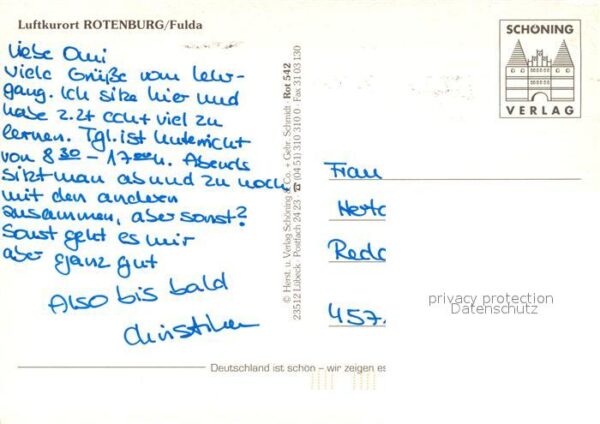 Luftkurort ROTENBURG/Fulda
Liebe Omi
viele Grüße vom Lehr-
gang. Ich sitze hier und
habe z.Zt echt viel zu
lernen. Tgl. ist Unterricht
von 8 30 - 17 00 h. Abends
sitzt man ab und zu noch
mit den anderen
zusammen, aber sonst?
Sonst geht es mir
aber ganz gut
Also bis bald
SCHÖNING
VERLAG
© Herst. u. Verlag Schöning & Co. + Gebr. Schmidt · Rot 542
23512 Lübeck · Postfach 24 23 · ☎ (04 51) 310 310 0 · Fax 31 03 130
Frau
457
privacy protection
Datenschutz
Deutschland ist schön – wir zeigen es